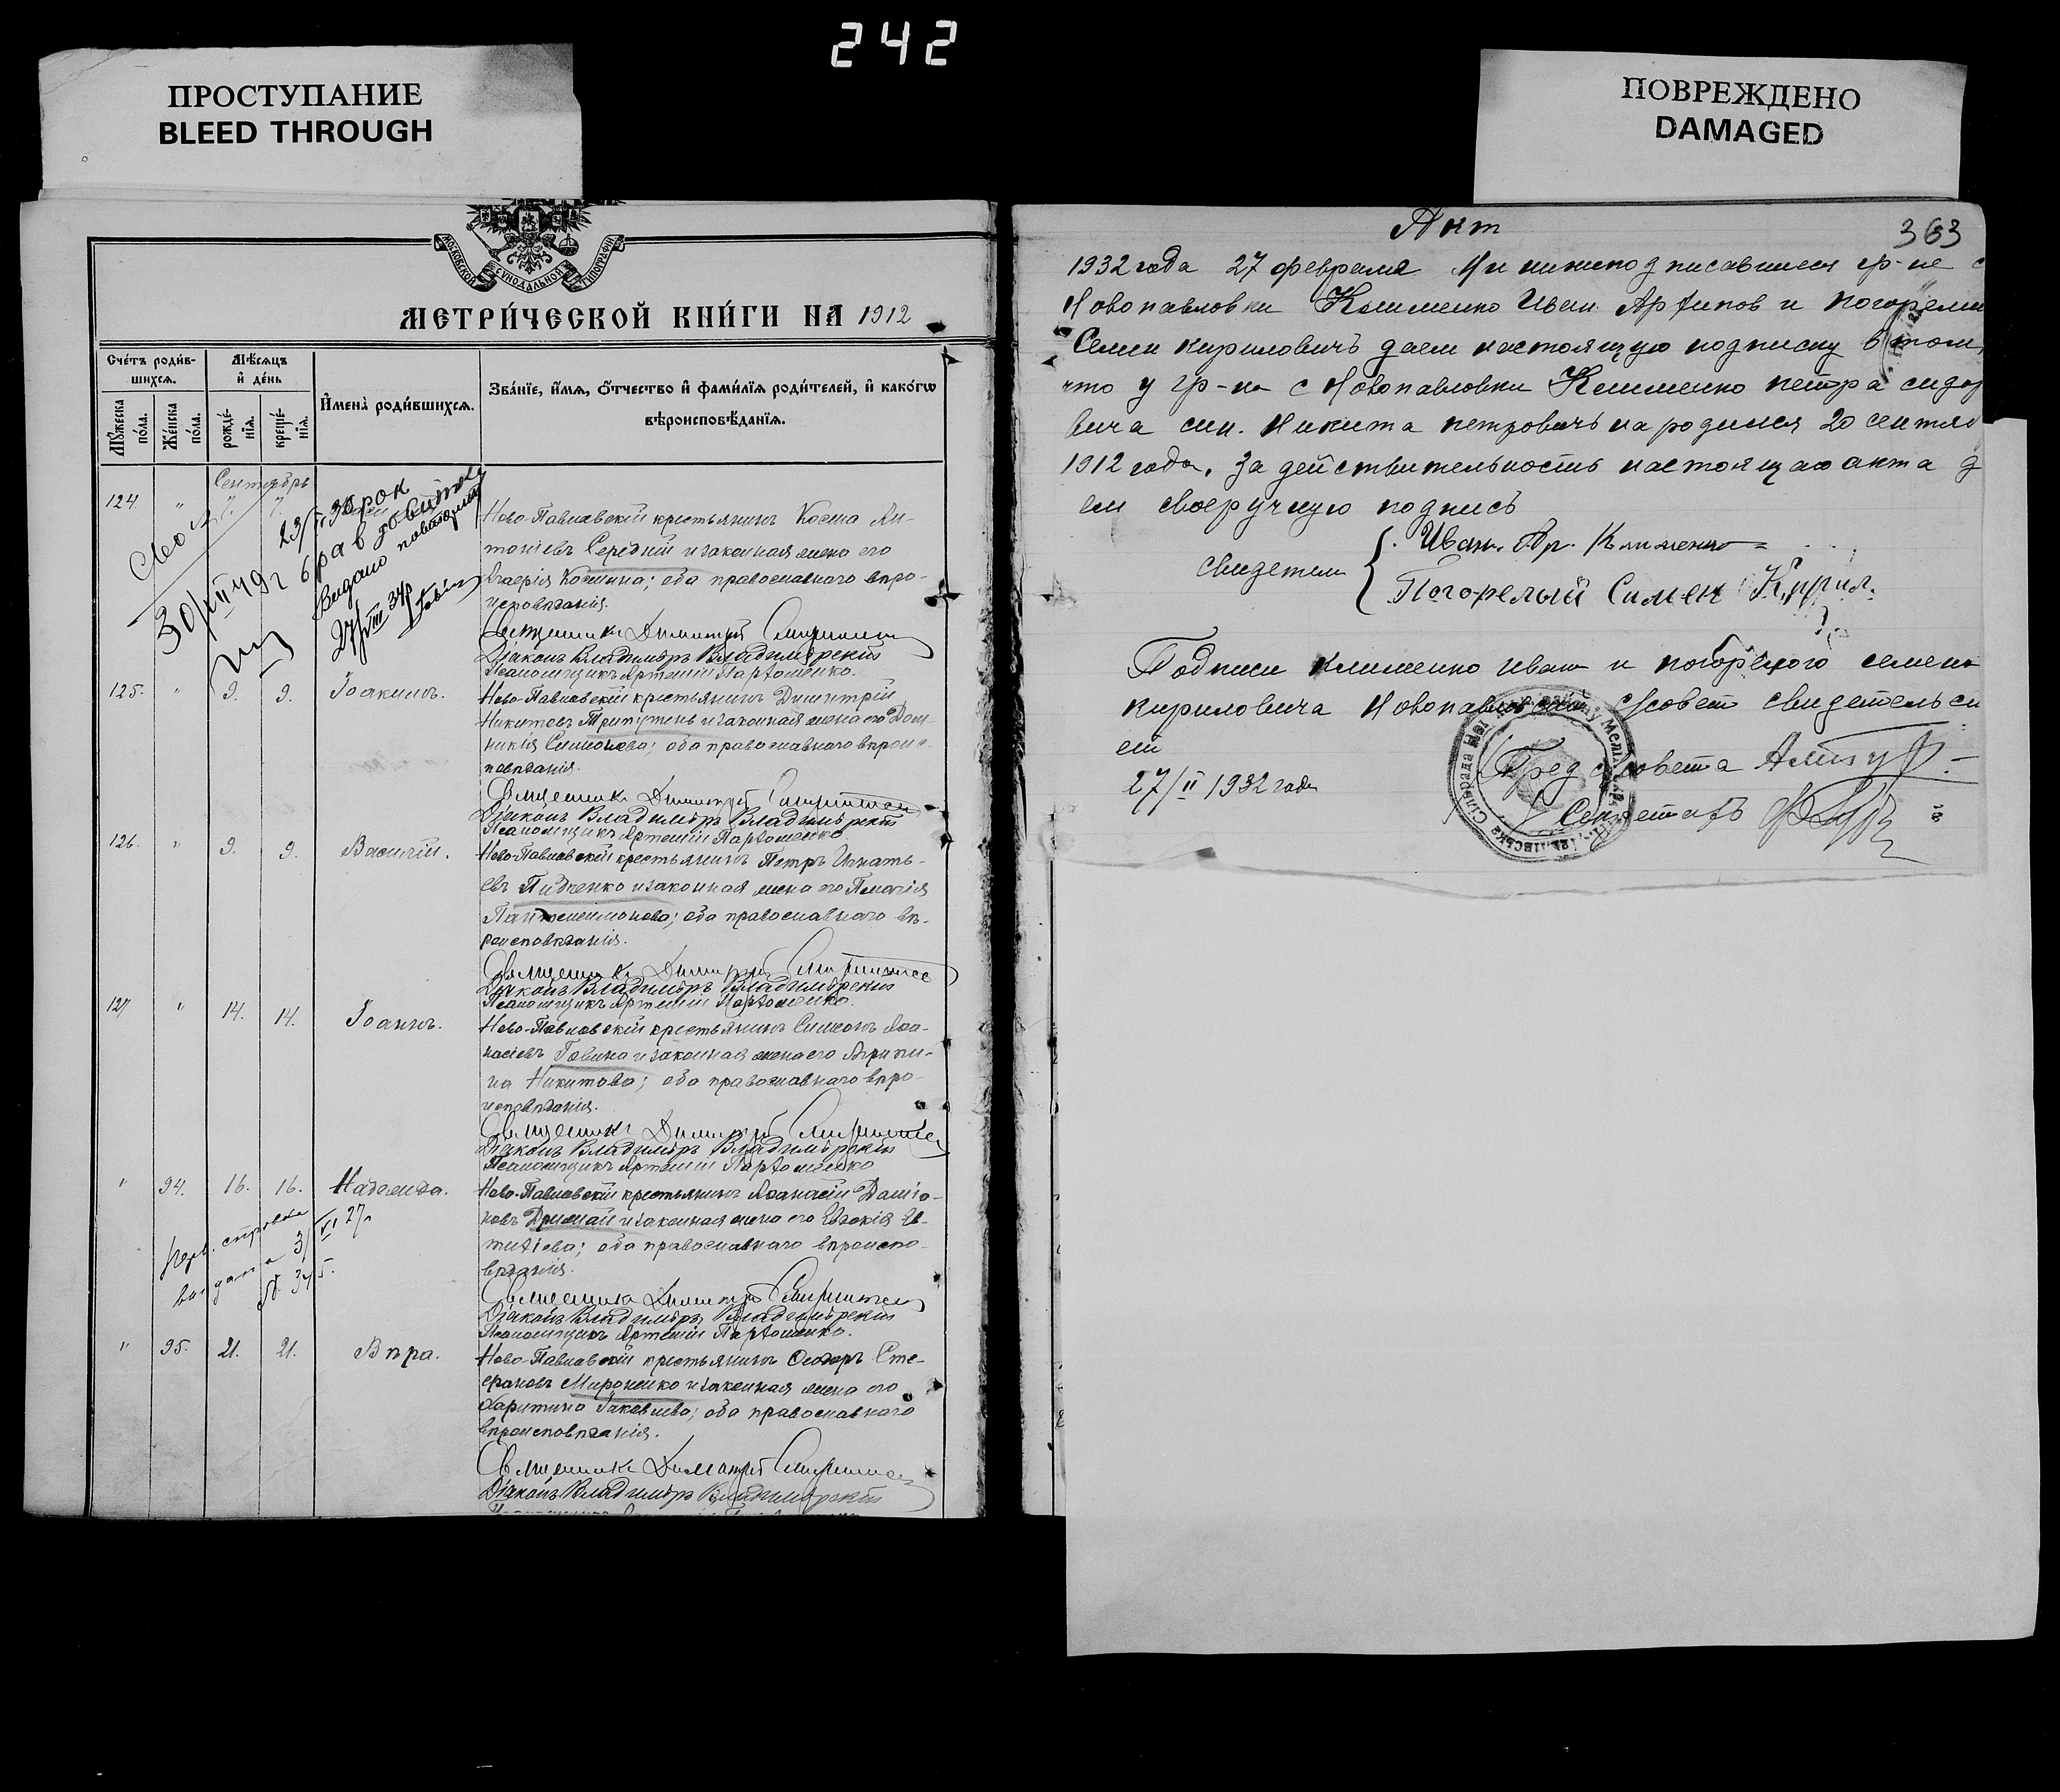 242
ПРОСТУПАНИЕ
BLEED THROUGH
ПОВРЕЖДЕНО
DAMAGED
МОСКОВСКОЙ СѴНОДАЛЬНОЙ ТИПОГРАФІИ
МЕТРИ́ЧЕСКОЙ КНИ́ГИ НА 1912
Сче́тъ роди́в-
шихсѧ.
Мѣ́сѧцъ
и҆ де́нь
И҆мена̀ роди́вшихсѧ.
Зва́нїе, и҆́мѧ, ѻ҆́тчество и҆ фами́лїѧ роди́телей, и҆ како́гѡ
вѣроисповѣ́данїѧ.
Мꙋ́жеска
по́ла.
Же́нска
по́ла.
рожде́-
нїѧ.
креще́-
нїѧ.
Сентябрь
124. " 7. 7.
30/XII 49 г
23/II 30 рок
Видано
27/VIII 34р
Ново-Павловскій крестьянинъ Косма Ан-
тоніевъ Середній и законная жена его
Космина; оба православнаго вѣро-
исповѣданія.
Священникъ Димитрій
Діаконъ Владиміръ Владимірскій
Псаломщикъ Артемій Пархоменко.
125. " 9. 9. Іоакимъ.
Ново-Павловскій крестьянинъ Димитрій
Никитовъ Трипутень и законная жена его Дом-
никія Симонова; оба православнаго вѣроис-
повѣданія.
Священникъ Димитрій
Діаконъ Владиміръ Владимірскій
Псаломщикъ Артемій Пархоменко
126. " 9. 9. Василій.
Ново-Павловскій крестьянинъ Петръ Игнать-
евъ Пидченко и законная жена его Пелагія
Пантелеимонова; оба православнаго вѣ-
роисповѣданія.
Священникъ Димитрій
Діаконъ Владиміръ Владимірскій
Псаломщикъ Артемій Пархоменко.
127 " 14. 14. Іоаннъ.
Ново-Павловскій крестьянинъ Симеонъ Аѳа-
насіевъ Говина и законная жена его Агрипи-
на Никитова; оба православнаго вѣро-
исповѣданія.
Священникъ Димитрій
Діаконъ Владиміръ Владимірскій
Псаломщикъ Артемій Пархоменко
" 94. 16. 16. Надежда.
справка
видана 3/VI 27г
№ 345.
Ново-Павловскій крестьянинъ Аѳанасій Даніи-
ловъ Дрижай и законная жена его Евдокія Ев-
тихіева; оба православнаго вѣроиспо-
вѣданія.
Священникъ Димитрій
Діаконъ Владиміръ Владимірскій
Псаломщикъ Артемій Пархоменко.
" 95. 21. 21. Вѣра.
Ново-Павловскій крестьянинъ Ѳеодоръ Сте-
фановъ Мироненко и законная жена его
Харитина Іаковлева; оба православнаго
вѣроисповѣданія.
Священникъ Димитрій
Діаконъ Владиміръ Владимірскій
Акт
363
1932 года 27 февраля Мы нижеподписавшиеся гр-не с
Новопавловки Клименко Иван Архипов и Погорелий
Семен кирилович даем настоящую подписку в том,
что у гр-на с Новопавловки Клименко петра сидор
вича син. Никита петрович народился 20 сентяб
1912 года. За действительность настоящаго акта д
ем своеручную подпись
свидетели { Иван. Ар. Клименко
Погорелый Симен Кирил.
Подписи клименко иван и погорелого семена
кириловича Новопавловский с/совет свидетельству
ет
27/II 1932 года
Пред с/совета
Секретарь